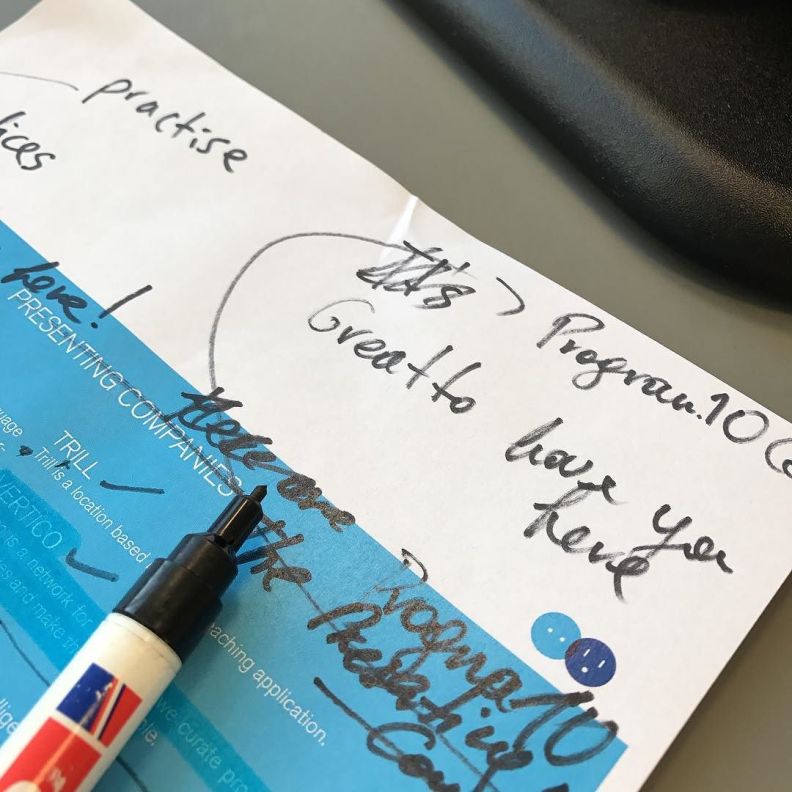 practise
ices
It's > Program.10
Great to have you
here
here!
PRESENTING COMPANIES
Here are
the Program.10
uage
TRILL
Trill is a location based
VERTICO
is a network for
es and make
eaching application.
we curate pro